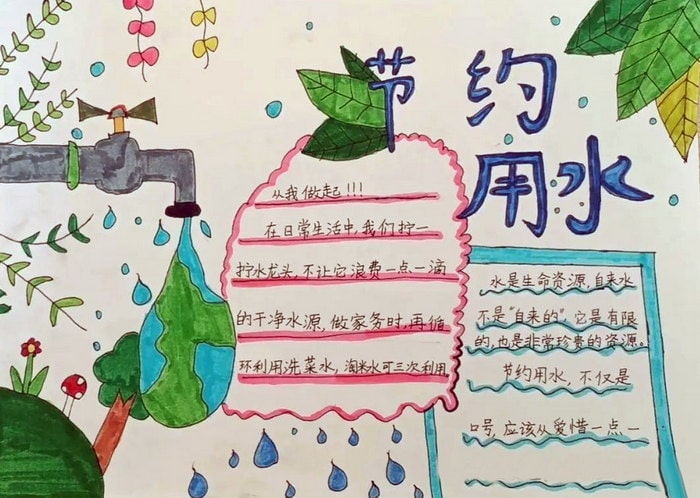 节约
用水
从我做起!!!
在日常生活中,我们拧一
拧水龙头,不让它浪费一点一滴
的干净水源,做家务时,再循
环利用洗菜水,淘米水可三次利用
水是生命资源,自来水
不是“自来的”.它是有限
的,也是非常珍贵的资源。
节约用水,不仅是
口号,应该从爱惜一点一